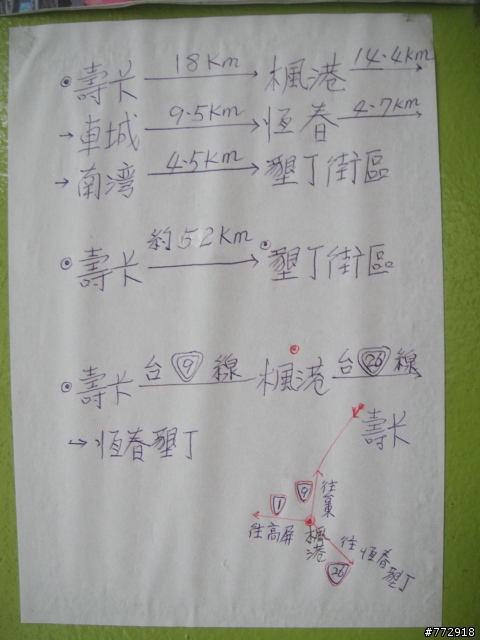 ⊙壽卡 18Km→ 楓港 14.4km→
→車城 9.5Km→ 恆春 4.7Km→
→南湾 4.5Km→ 墾丁街區
⊙壽卡 約52Km→ ⊙墾丁街區
⊙壽卡 台9線 楓港 台26線
→恆春墾丁
壽卡
9 往
1
往高屏 楓港 往恆春墾丁
26
#772918